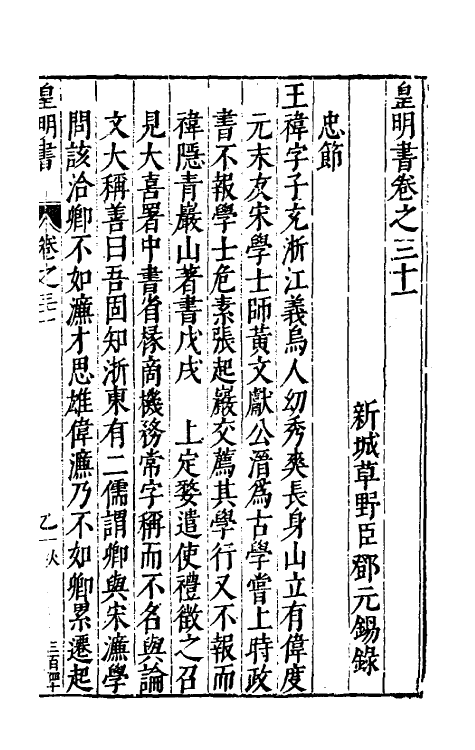 皇明書卷之三十一
新城草野臣鄧元錫錄
忠節
王禕字子充浙江義烏人幼秀爽長身山立有偉度
元末友宋學士師黃文獻公溍為古學嘗上時政
書不報學士危素張起巖交薦其學行又不報而
禕隱青巖山著書戊戌　上定婺遣使禮徵之召
見大喜署中書省掾商機務常字稱而不名與論
文大稱善曰吾固知浙東有二儒謂卿與宋濂學
問該洽卿不如濂才思雄偉濂乃不如卿累遷起
皇明書
卷之三十一